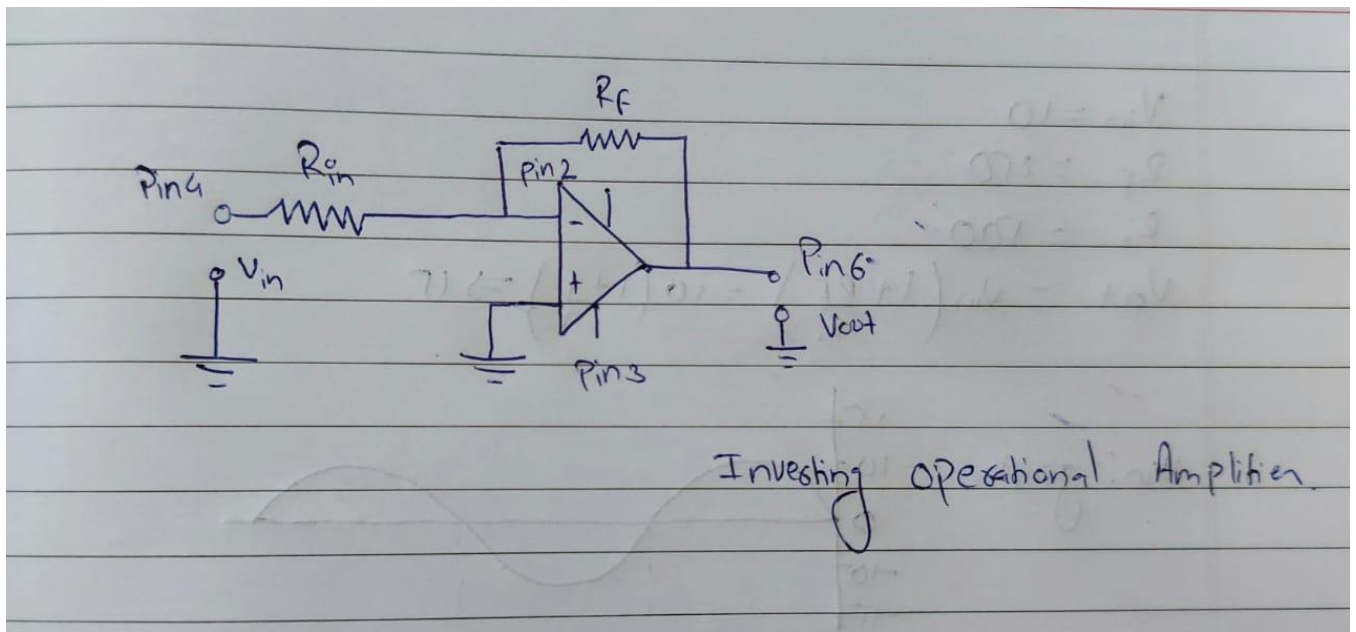 RF
Rin
Pin 4
pin 2
-
Vin
+
Pin 6
Vout
Pin 3
Inverting operational Amplifier.